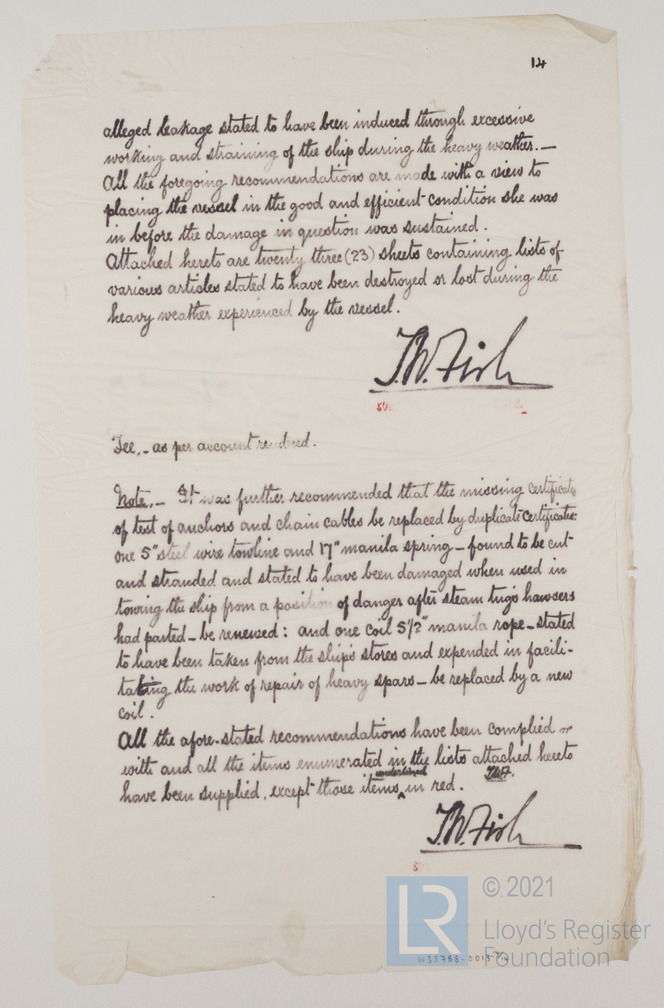 14
alleged leakage stated to have been induced through excessive
working and straining of the ship during the heavy weather.—
All the foregoing recommendations are made with a view to
placing the vessel in the good and efficient condition she was
in before the damage in question was sustained.
Attached hereto are twenty three (23) sheets containing lists of
various articles stated to have been destroyed or lost during the
heavy weather experienced by the vessel.
T.W. Fish
Fee,- as per account rendered.
Note,— It was further recommended that the missing certificate
of test of anchors and chain cables be replaced by duplicate certificate:
one 5" steel wire towline and 17" manila spring – found to be cut
and stranded and stated to have been damaged when used in
towing the ship from a position of danger after steam tug's hawsers
had parted – be renewed: and one coil 5½" manila rope – stated
to have been taken from the ship's stores and expended in facili-
tating the work of repair of heavy spars – be replaced by a new
coil.
All the afore-stated recommendations have been complied
with and all the items enumerated in the lists attached hereto
have been supplied, except those items underlined in red.
T.W. Fish
LR © 2021
Lloyd's Register
Foundation